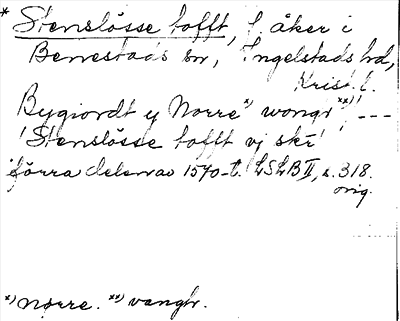 * Stenslösse tofft, f. åker i
Benestads sn, Ingelstads hd,
Krist. l.
Bygiordt y Norre *) wongr **) ---
'Stenslösse tofft vj skr'
förra delen av 1570-t. LSLB II, s. 318.
orig.
*) nørre. **) vangh.